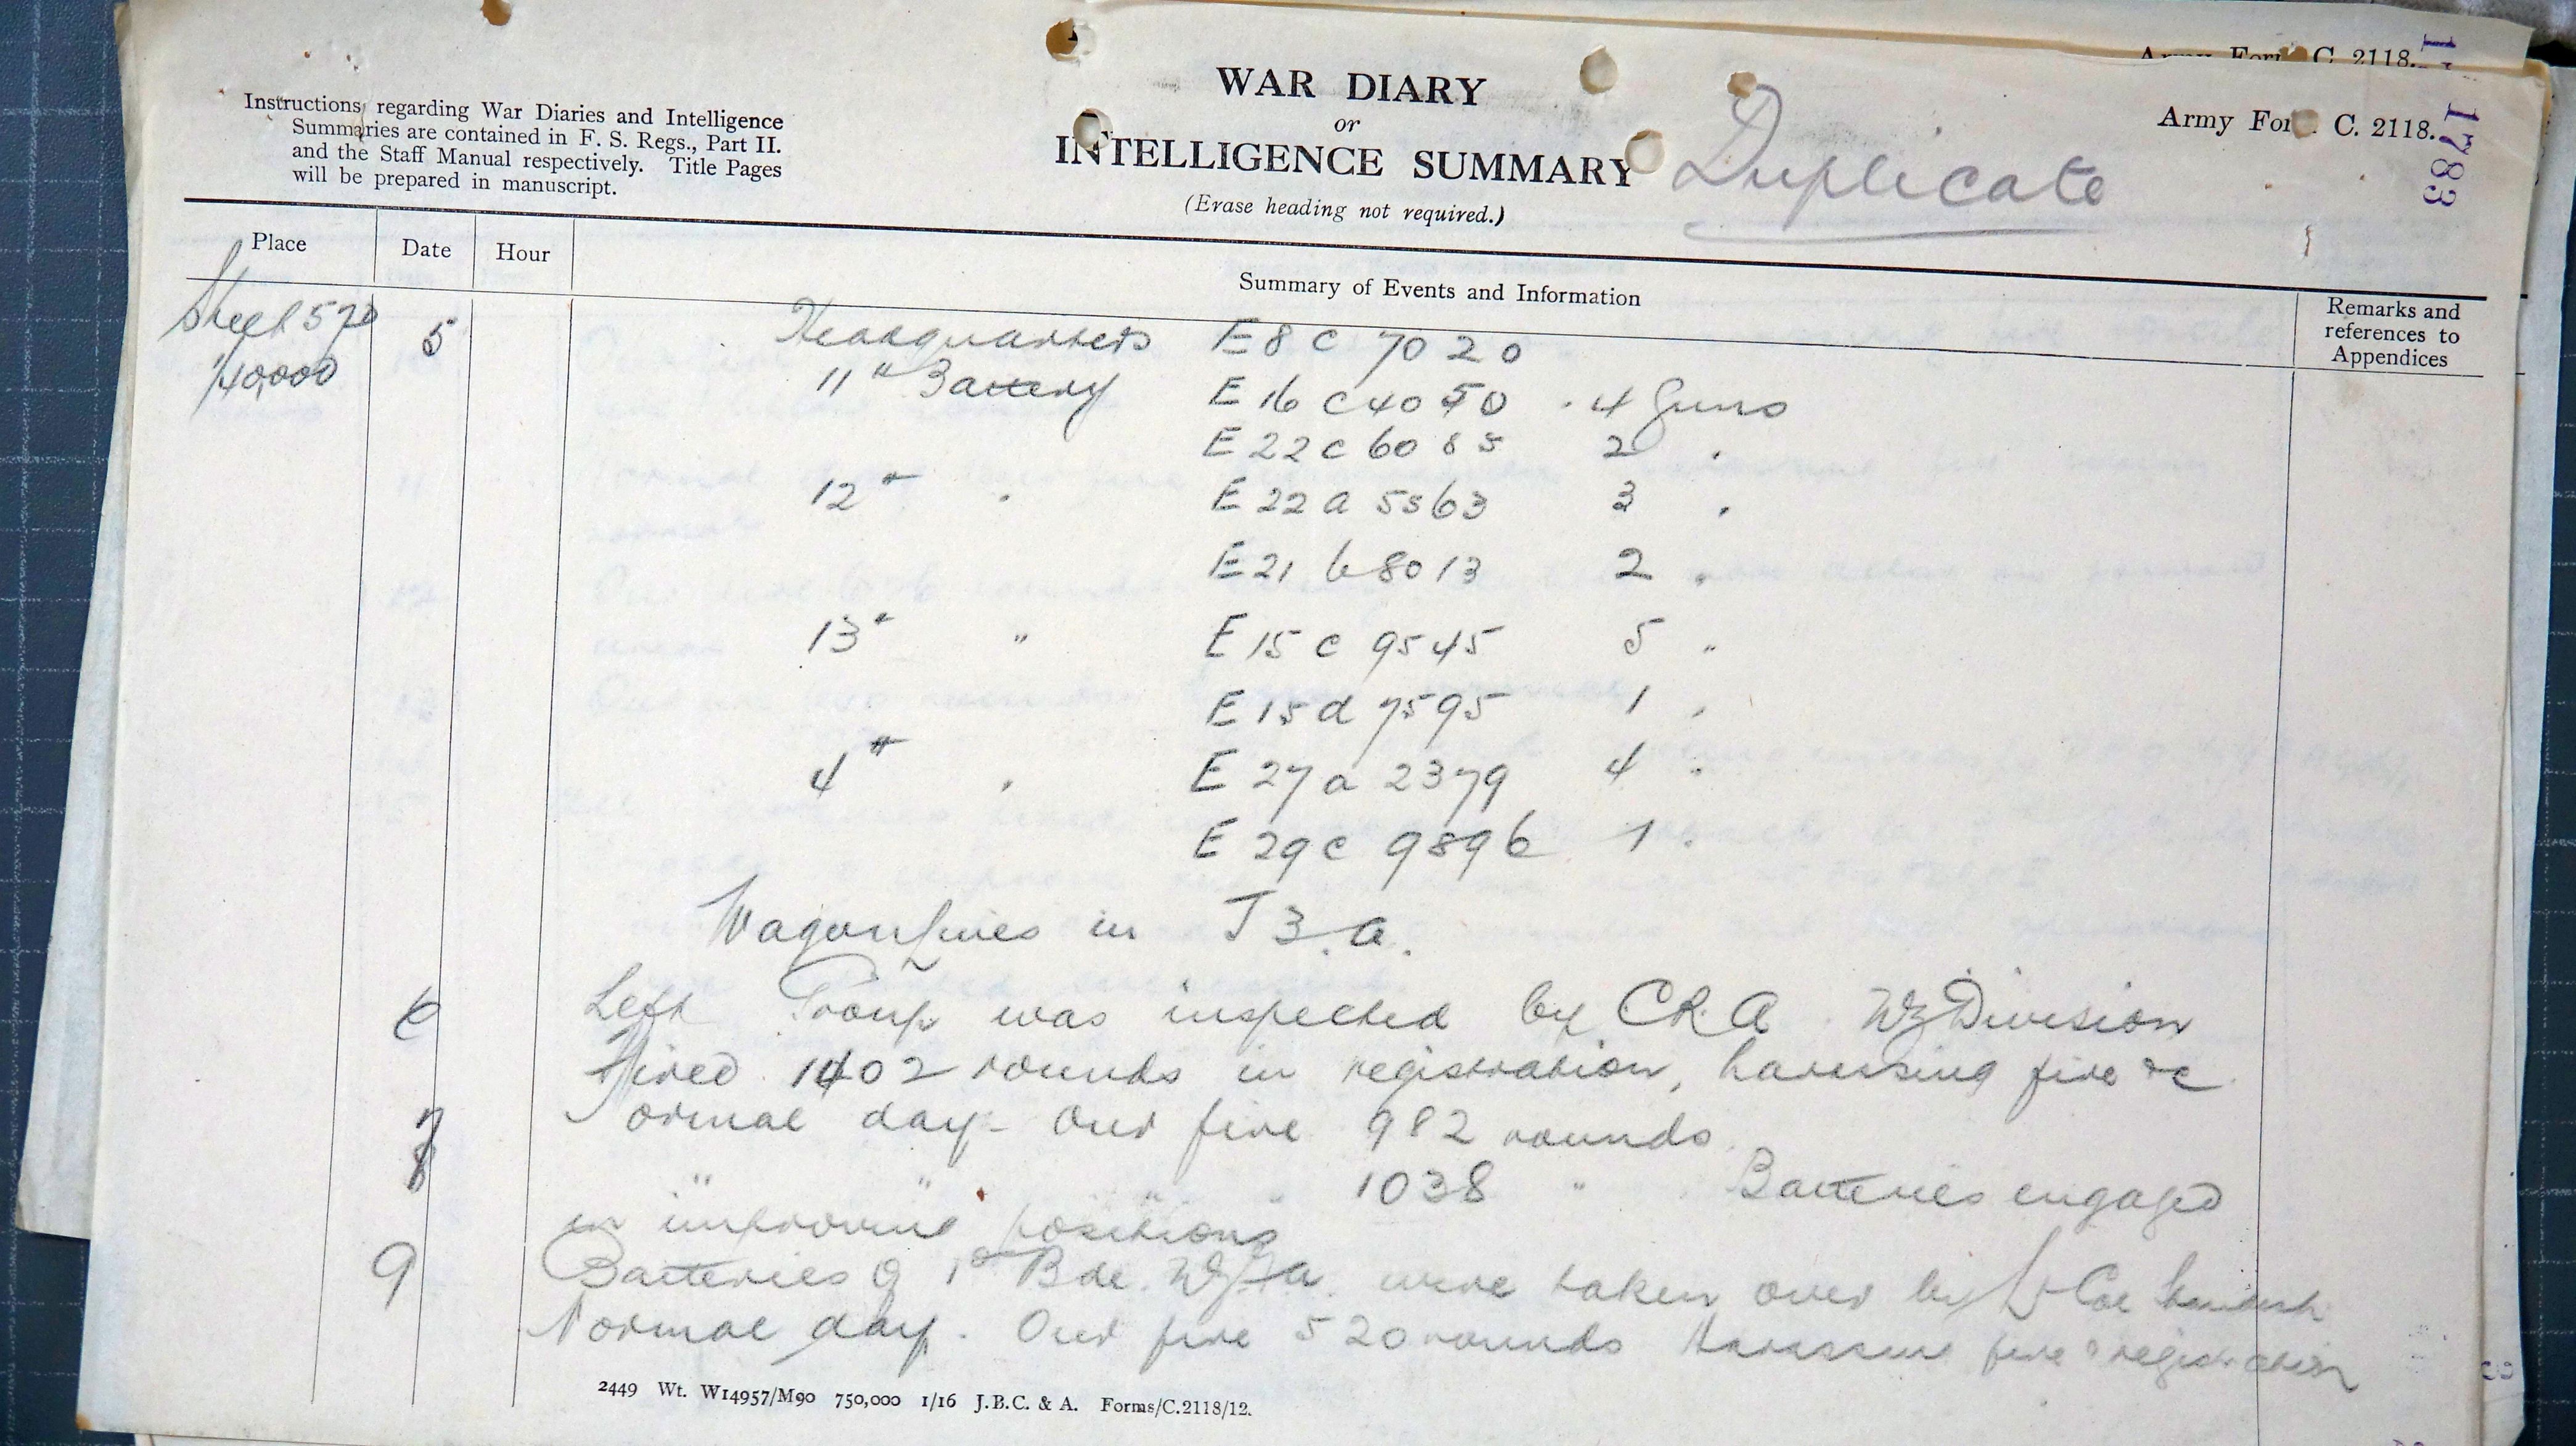 Army Form C. 2118.
Instructions regarding War Diaries and Intelligence
Summaries are contained in F. S. Regs., Part II.
and the Staff Manual respectively. Title Pages
will be prepared in manuscript.
WAR DIARY
or
INTELLIGENCE SUMMARY
(Erase heading not required.)
Duplicate
Army For C. 2118.
1783
Place
Date
Hour
Summary of Events and Information
Remarks and
references to
Appendices
Sheet 57D
1/40,000
5
Headquarters E 8 c 70 20
11th Battery E 16 c 40 50 . 4 Guns
E 22 c 60 85 2 "
12th " E 22 a 55 63 3 "
E 21 b 80 13 2 "
13th " E 15 c 95 45 5 "
E 15 d 75 95 1 "
4th " E 27 a 23 79 4 "
E 29 c 98 96 1 "
Wagon lines in J 3. a.
6 Left Group was inspected by CRA NZ Division
Fired 1402 rounds in registration, harassing fire &c
7 Normal day - Our fire 982 rounds
8 " " " " 1038 " Batteries engaged
in improving positions
9 Batteries of 1st Bde. NZFA were taken over by Lt Col
Normal day. Our fire 520 rounds Harassing fire & registration
2449 Wt. W14957/M90 750,000 1/16 J.B.C. & A. Forms/C.2118/12.